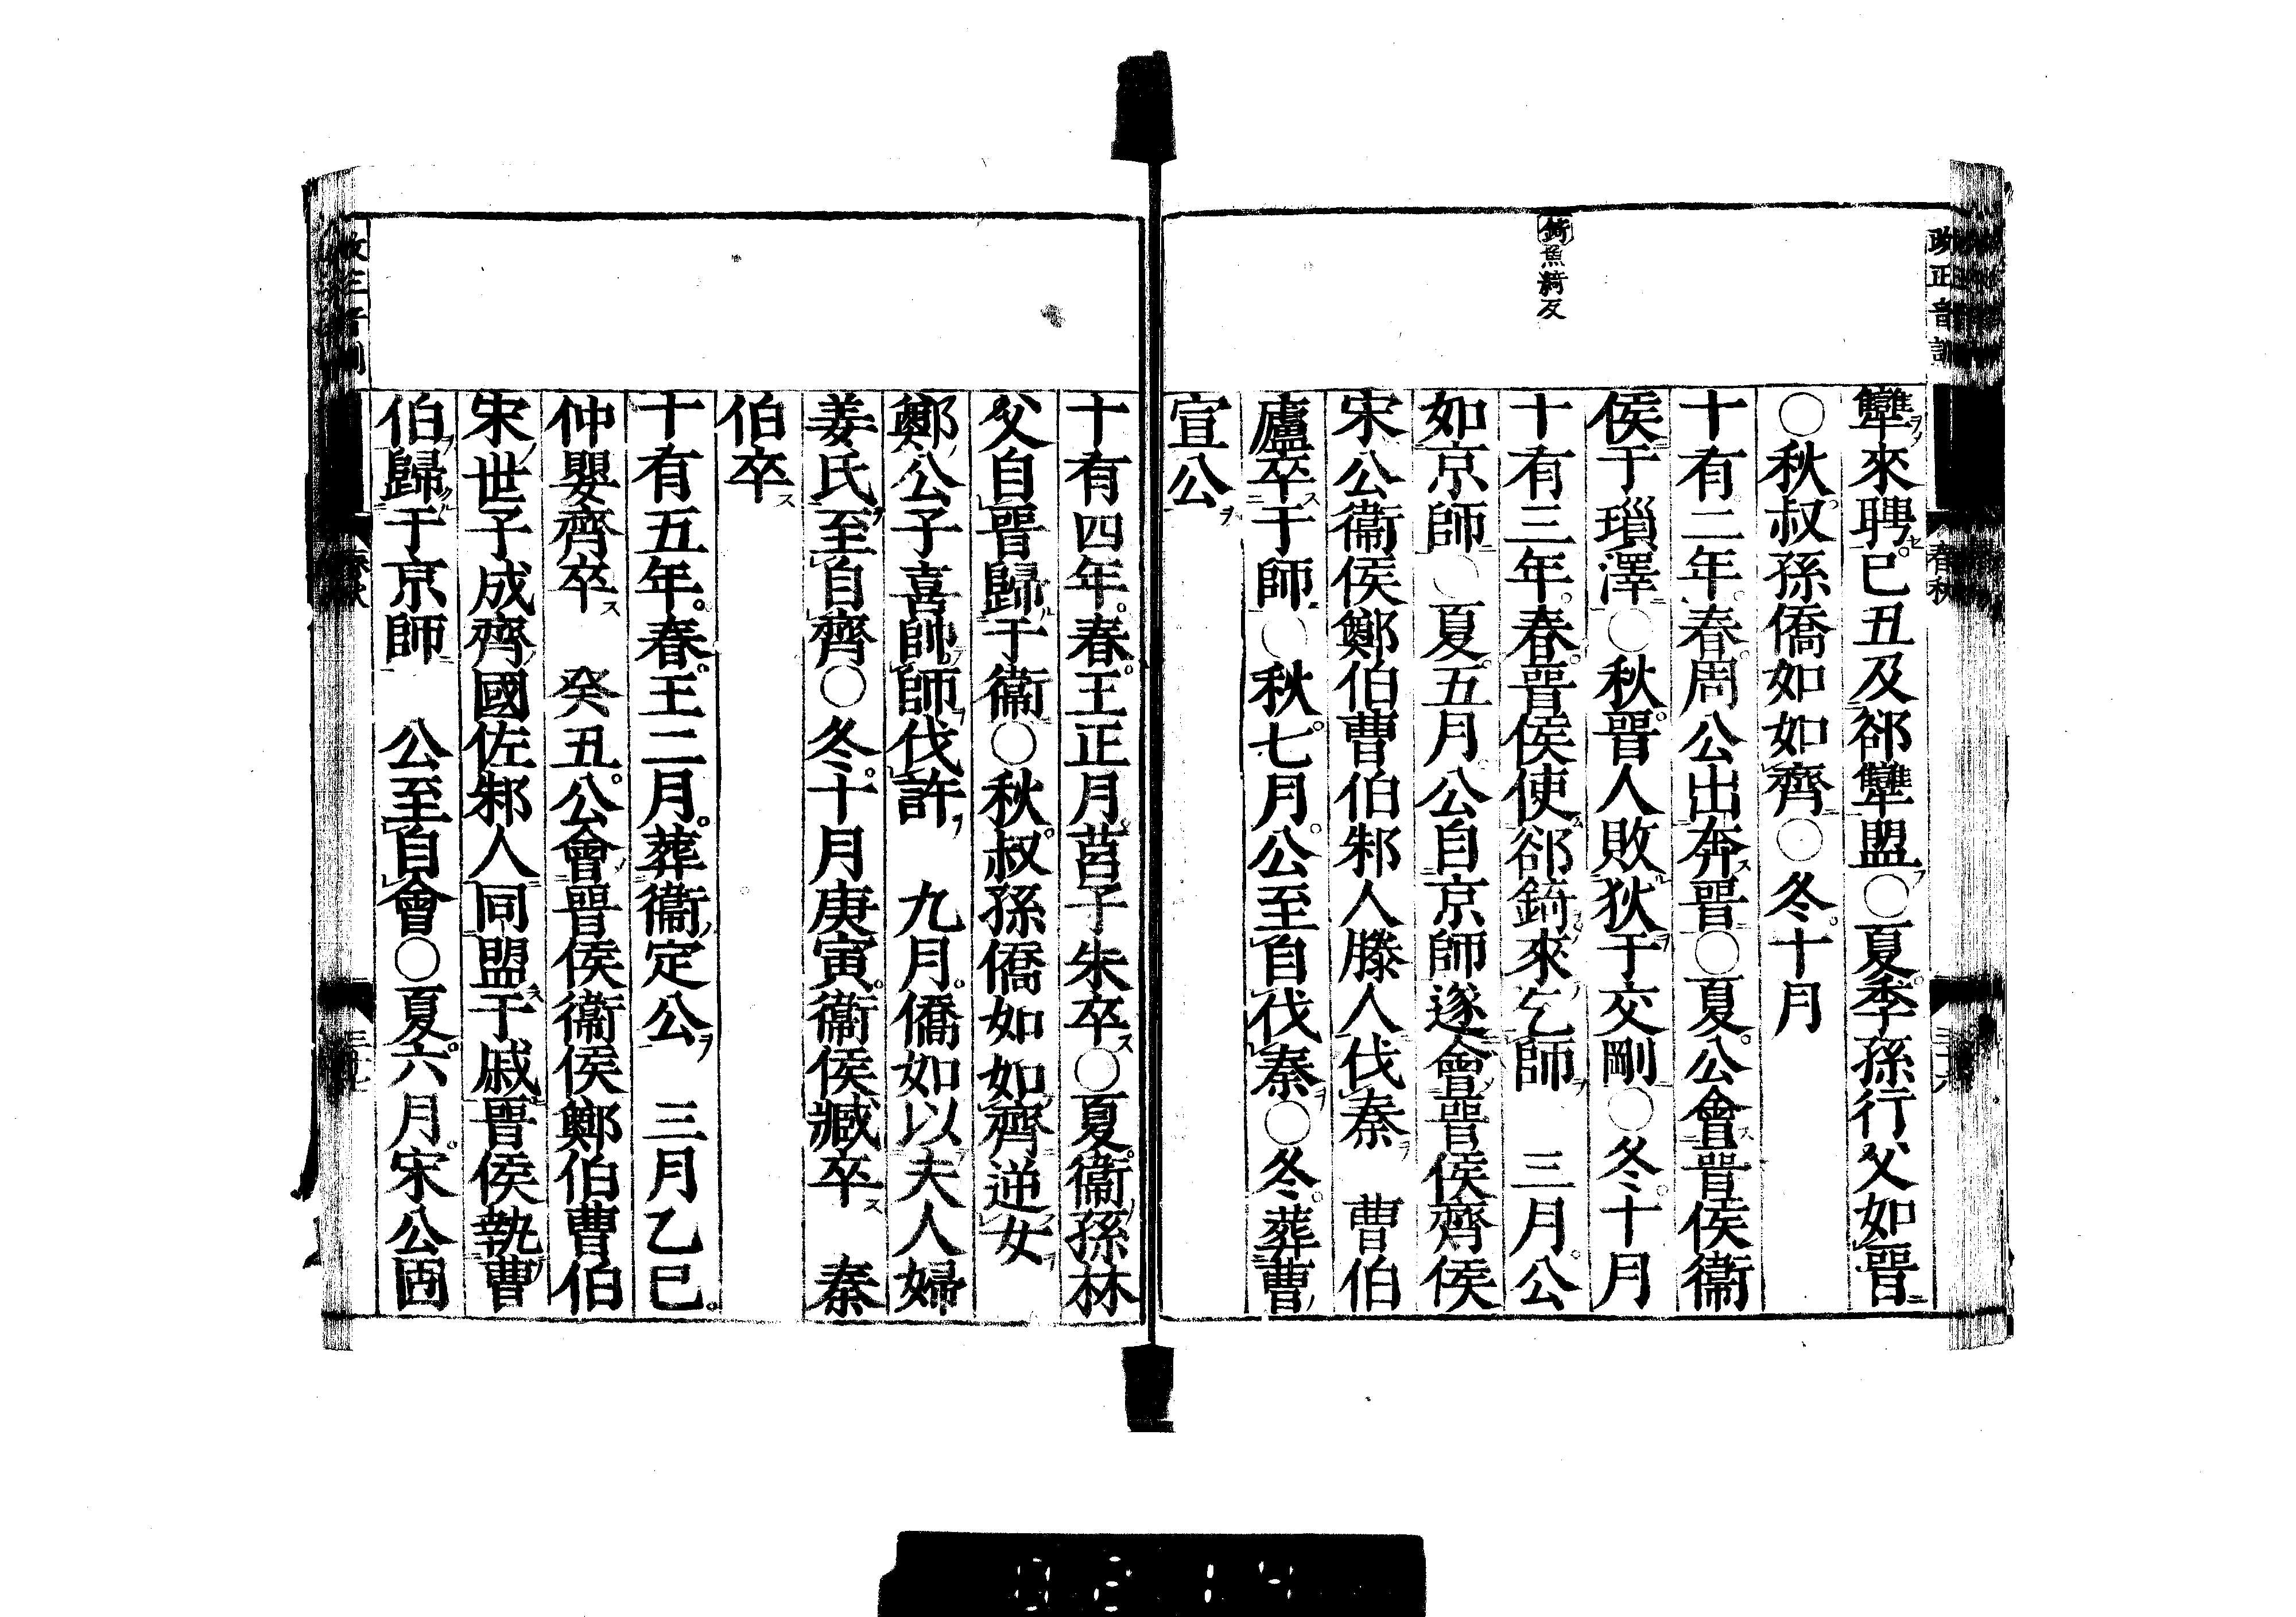 改正音訓
春秋
錡魚綺反
犨來聘己丑及郤犨盟○夏季孫行父如晉
○秋叔孫僑如如齊○冬十月
十有二年春周公出奔晉○夏公會晉侯衞
侯于瑣澤○秋晉人敗狄于交剛○冬十月
十有三年春晉侯使郤錡來乞師　三月公
如京師○夏五月公自京師遂會晉侯齊侯
宋公衞侯鄭伯曹伯邾人滕人伐秦　曹伯
廬卒于師○秋七月公至自伐秦○冬葬曹
宣公
十有四年春王正月莒子朱卒○夏衞孫林
父自晉歸于衞○秋叔孫僑如如齊逆女
鄭公子喜帥師伐許　九月僑如以夫人婦
姜氏至自齊○冬十月庚寅衞侯臧卒　秦
伯卒
十有五年春王二月葬衞定公　三月乙巳
仲嬰齊卒　癸丑公會晉侯衞侯鄭伯曹伯
宋世子成齊國佐邾人同盟于戚晉侯執曹
伯歸于京師　公至自會○夏六月宋公固
改正音訓
春秋
三十七